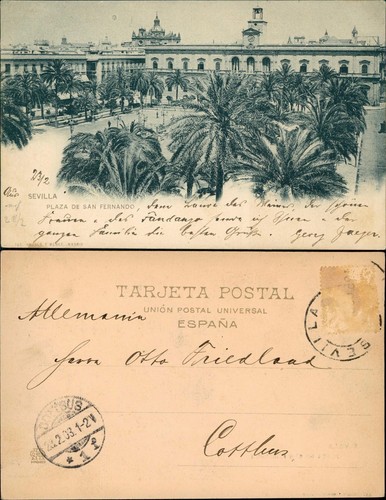 23/2
SEVILLA
PLAZA DE SAN FERNANDO
Dem Lande des Weines, der schönen
Frauen u. des Fandango sende ich Ihnen u. der
ganzen Familie die besten Grüße. Georg
TARJETA POSTAL
UNIÓN POSTAL UNIVERSAL
ESPAÑA
Allemania
Herrn Otto Friedland
Cottbus
SEVILLA
COTTBUS
1-2N
* 1 f